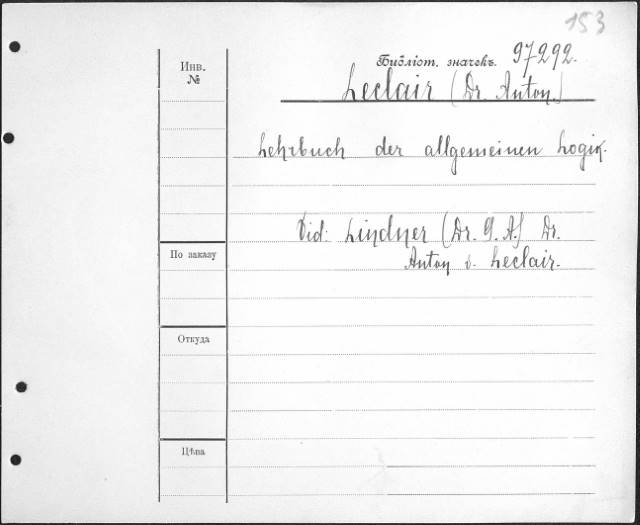 153
Инв. №
Библіот. значекъ. 97292.
Leclair (Dr. Anton.)
Lehrbuch der allgemeinen Logik.
Vid: Lindner (Dr. G. A.) Dr.
Anton v. Leclair.
По заказу
Откуда
Цѣна